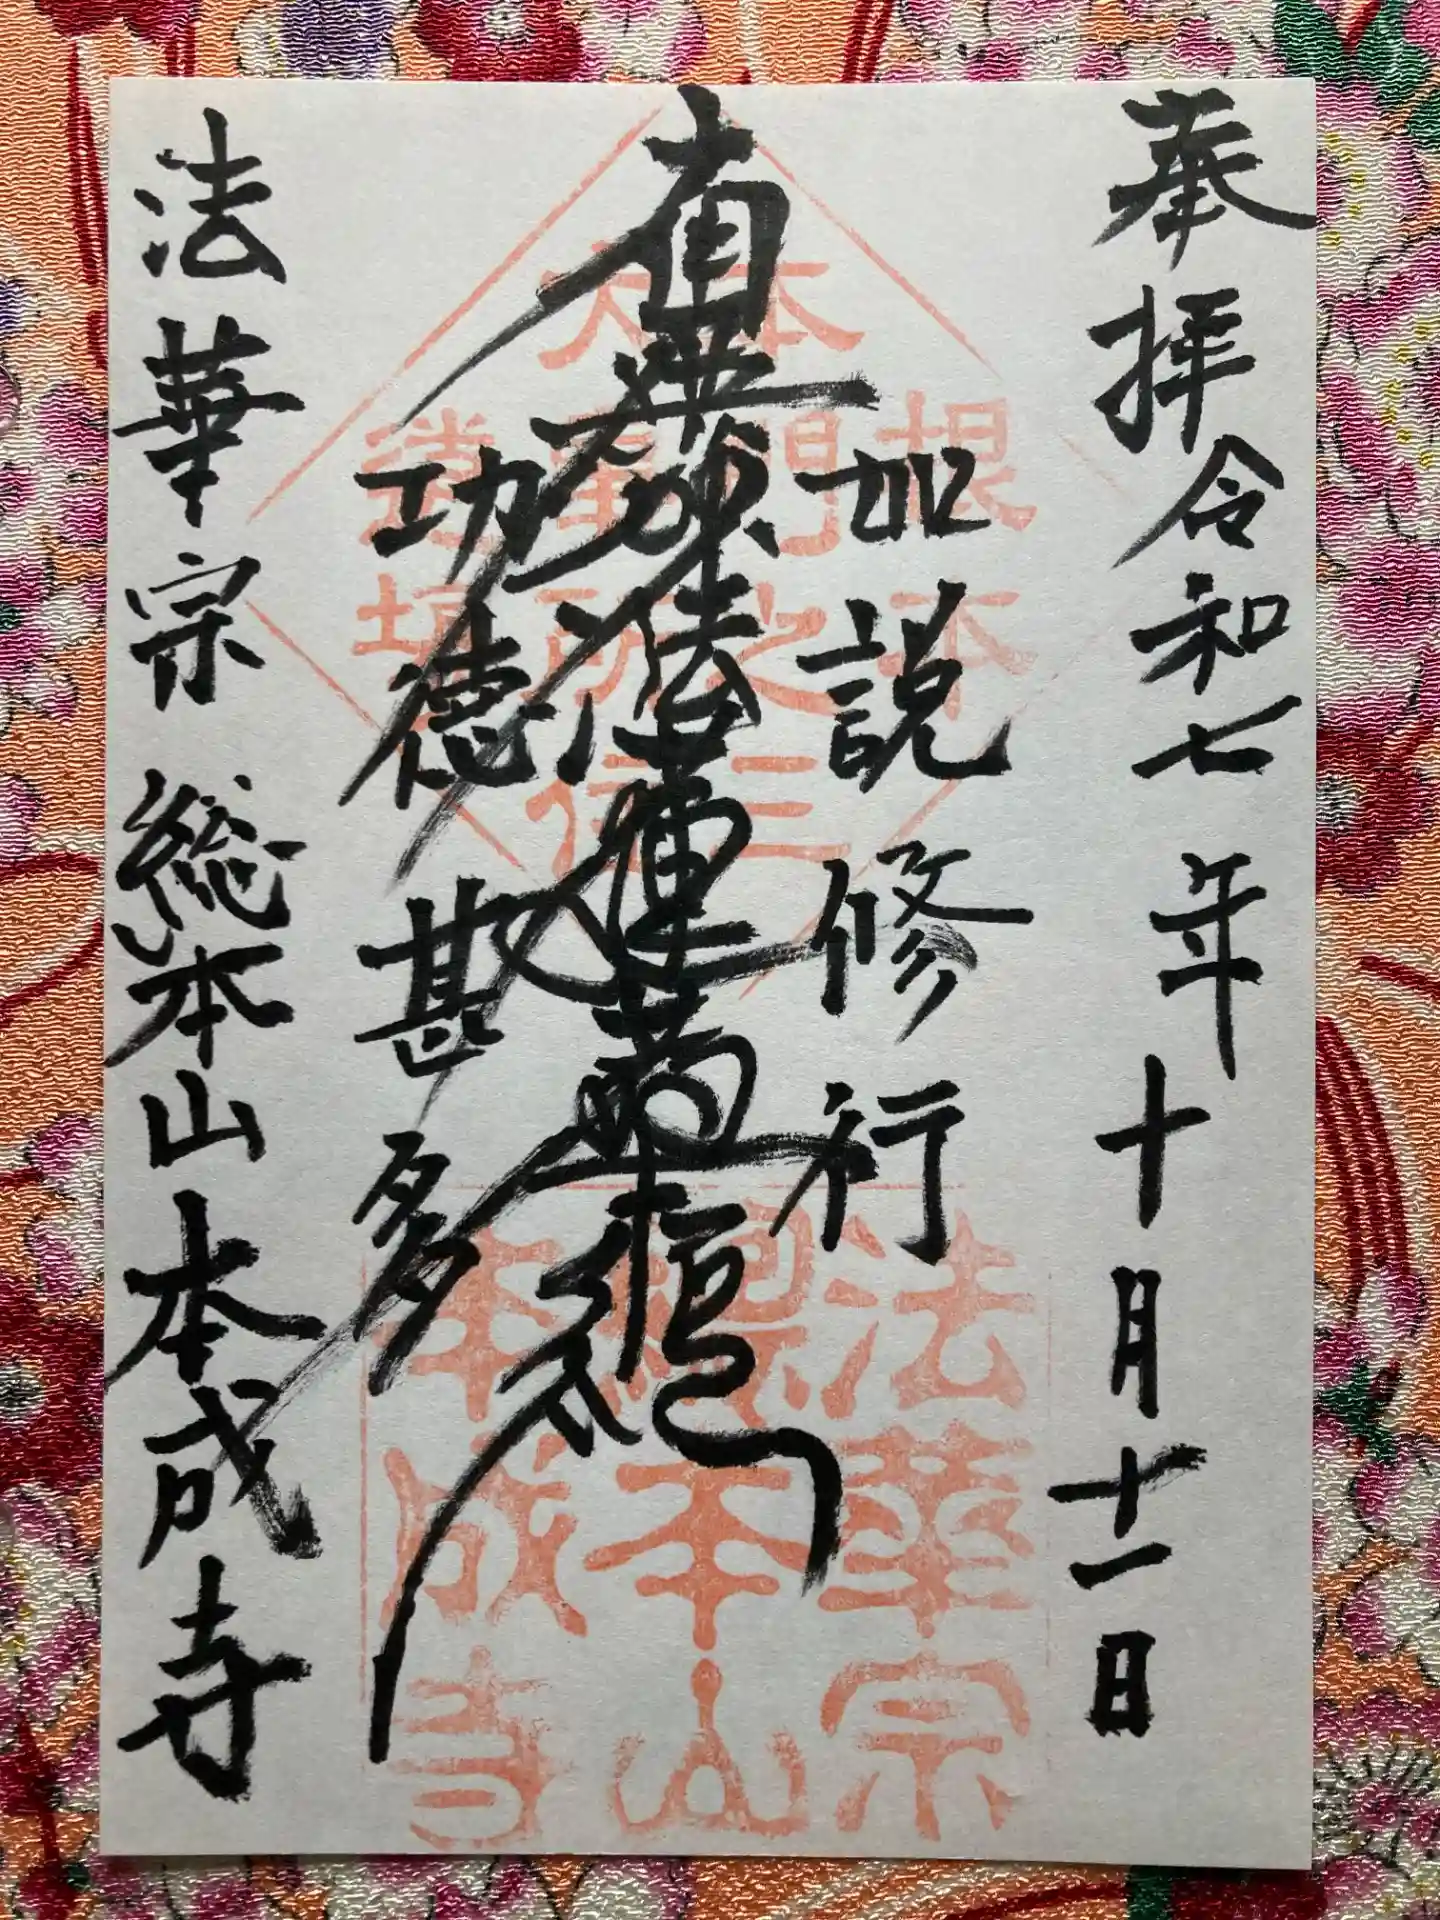 奉拝 令和七年十月十一日
如説修行
南無妙法蓮華経
功徳甚多
法華宗 総本山 本成寺
法華宗
總本山
本成寺